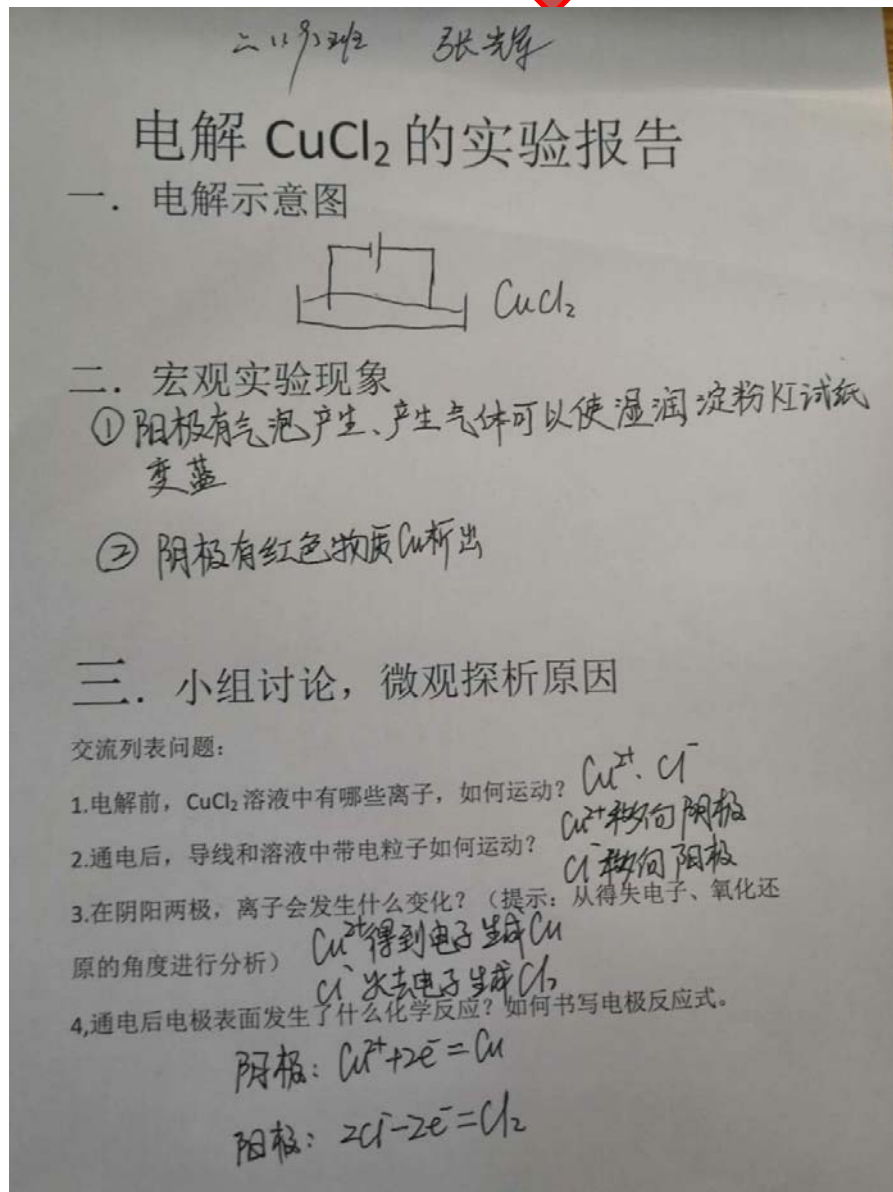 张
电解 CuCl₂ 的实验报告
一. 电解示意图
CuCl₂
二. 宏观实验现象
①阳极有气泡产生、产生气体可以使湿润淀粉KI试纸
变蓝
② 阴极有红色物质Cu析出
三. 小组讨论，微观探析原因
交流列表问题：
1.电解前，CuCl₂ 溶液中有哪些离子，如何运动？ Cu²⁺、Cl⁻
2.通电后，导线和溶液中带电粒子如何运动？ Cu²⁺移向阴极
Cl⁻移向阳极
3.在阴阳两极，离子会发生什么变化？（提示：从得失电子、氧化还
原的角度进行分析） Cu²⁺得到电子生成Cu
Cl⁻失去电子生成Cl₂
4,通电后电极表面发生了什么化学反应？如何书写电极反应式。
阴极：Cu²⁺+2e⁻=Cu
阳极：2Cl⁻-2e⁻=Cl₂